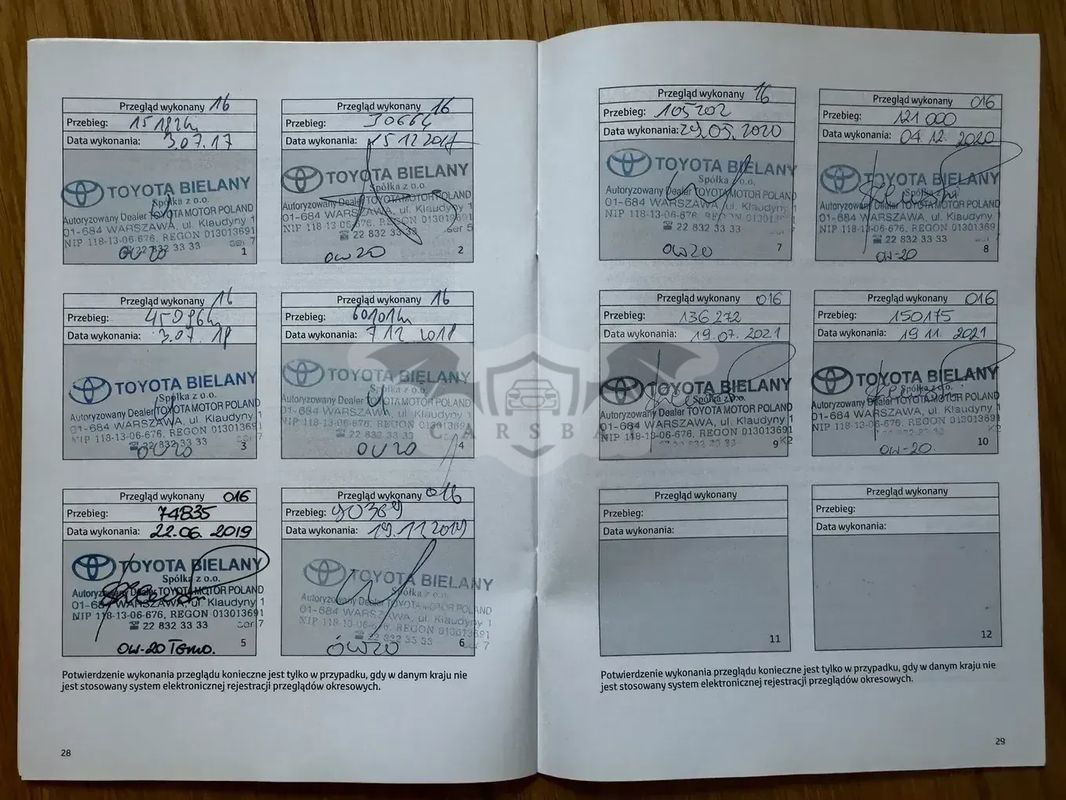 Przegląd wykonany 16
Przebieg: 15182k
Data wykonania: 3.07.17
TOYOTA BIELANY
Autoryzowany Dealer TOYOTA MOTOR POLAND
01-684 WARSZAWA, ul. Klaudyny 1
NIP 118-13-06-676, REGON 013013691
☎ 22 832 33 33
0W20
1
Przegląd wykonany 16
Przebieg: 30664
Data wykonania: 15 12 2017
TOYOTA BIELANY
Spółka z o.o.
Autoryzowany Dealer TOYOTA MOTOR POLAND
01-684 WARSZAWA, ul. Klaudyny 1
NIP 118-13-06-676, REGON 013013691
☎ 22 832 33 33 ser 5
0W20
2
Przegląd wykonany 16
Przebieg:
Data wykonania: 3.07 18
TOYOTA BIELANY
Autoryzowany Dealer TOYOTA MOTOR POLAND
01-684 WARSZAWA, ul. Klaudyny 1
NIP 118-13-06-676, REGON 013013691
☎ 22 832 33 33
0W20
3
Przegląd wykonany 16
Przebieg: 60101k
Data wykonania: 7 12 2018
TOYOTA BIELANY
Spółka z o.o.
Autoryzowany Dealer TOYOTA MOTOR POLAND
01-684 WARSZAWA, ul. Klaudyny 1
NIP 118-13-06-676, REGON 013013691
☎ 22 832 33 33
0W20
4
Przegląd wykonany 016
Przebieg: 74835
Data wykonania: 22.06.2019
TOYOTA BIELANY
Spółka z o.o.
Autoryzowany Dealer TOYOTA MOTOR POLAND
01-684 WARSZAWA, ul. Klaudyny 1
NIP 118-13-06-676, REGON 013013691
☎ 22 832 33 33 ser 7
0W-20
5
Przegląd wykonany 016
Przebieg: 90369
Data wykonania: 19.11.2019
TOYOTA BIELANY
Spółka z o.o.
Autoryzowany Dealer TOYOTA MOTOR POLAND
01-684 WARSZAWA, ul. Klaudyny 1
NIP 118-13-06-676, REGON 013013691
☎ 22 832 33 33 ser 7
0W20
6
Potwierdzenie wykonania przeglądu konieczne jest tylko w przypadku, gdy w danym kraju nie
jest stosowany system elektronicznej rejestracji przeglądów okresowych.
28
Przegląd wykonany 16
Przebieg: 105202
Data wykonania: 29.05.2020
TOYOTA BIELANY
Spółka z o.o.
Autoryzowany Dealer TOYOTA MOTOR POLAND
01-684 WARSZAWA, ul. Klaudyny 1
NIP 118-13-06-676, REGON 013013691
☎ 22 832 33 33
0W20
7
Przegląd wykonany 016
Przebieg: 121 000
Data wykonania: 04.12.2020
TOYOTA BIELANY
Spółka z o.o.
Autoryzowany Dealer TOYOTA MOTOR POLAND
01-684 WARSZAWA, ul. Klaudyny 1
NIP 118-13-06-676, REGON 013013691
☎ 22 832 33 33
0W-20
8
Przegląd wykonany 016
Przebieg: 136 272
Data wykonania: 19.07.2021
TOYOTA BIELANY
Spółka z o.o.
Autoryzowany Dealer TOYOTA MOTOR POLAND
01-684 WARSZAWA, ul. Klaudyny 1
NIP 118-13-06-676, REGON 013013691
9
Przegląd wykonany 016
Przebieg: 150175
Data wykonania: 19.11.2021
TOYOTA BIELANY
Spółka z o.o.
Autoryzowany Dealer TOYOTA MOTOR POLAND
01-684 WARSZAWA, ul. Klaudyny 1
NIP 118-13-06-676, REGON 013013691
0W-20
10
Przegląd wykonany
Przebieg:
Data wykonania:
11
Przegląd wykonany
Przebieg:
Data wykonania:
12
Potwierdzenie wykonania przeglądu konieczne jest tylko w przypadku, gdy w danym kraju nie
jest stosowany system elektronicznej rejestracji przeglądów okresowych.
29